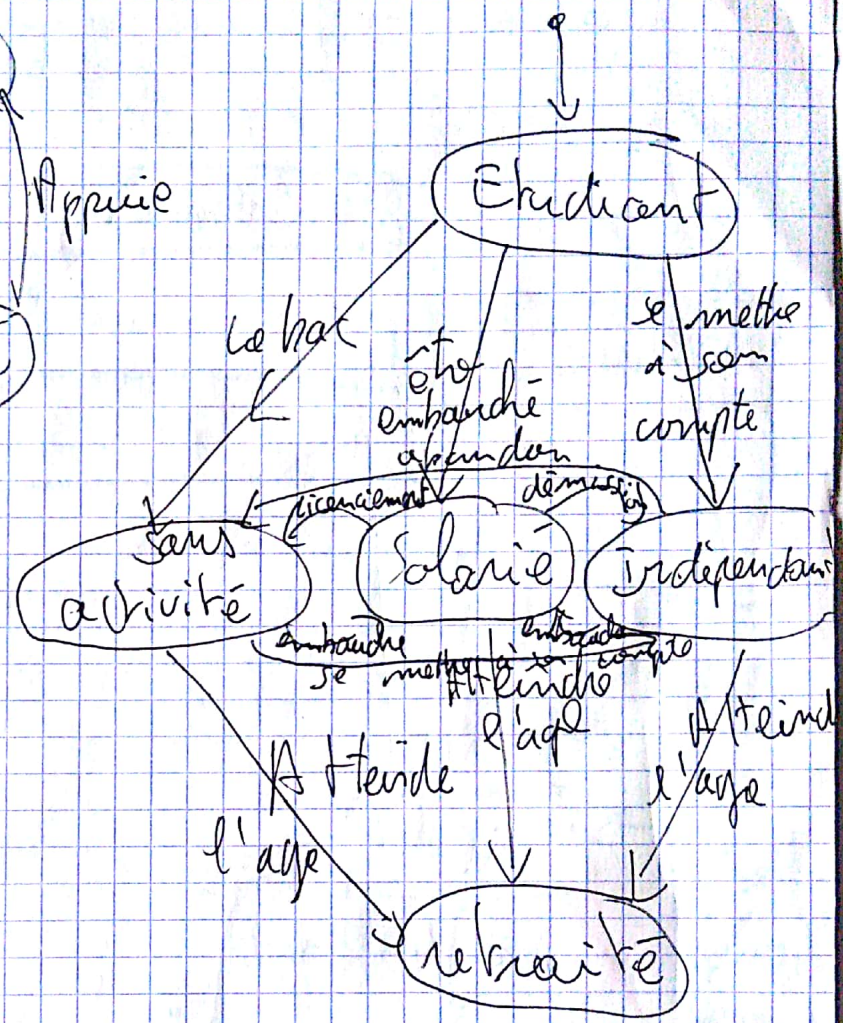 Appuie
Etudiant
Le bac
être
embauché
abandon
se mettre
à son
compte
licenciement
démission
sans
activité
Salarié
Indépendant
embauche
embauche
se mettre à son compte
Atteindre
l'age
Atteinde
l'age
Atteind
l'age
retraité